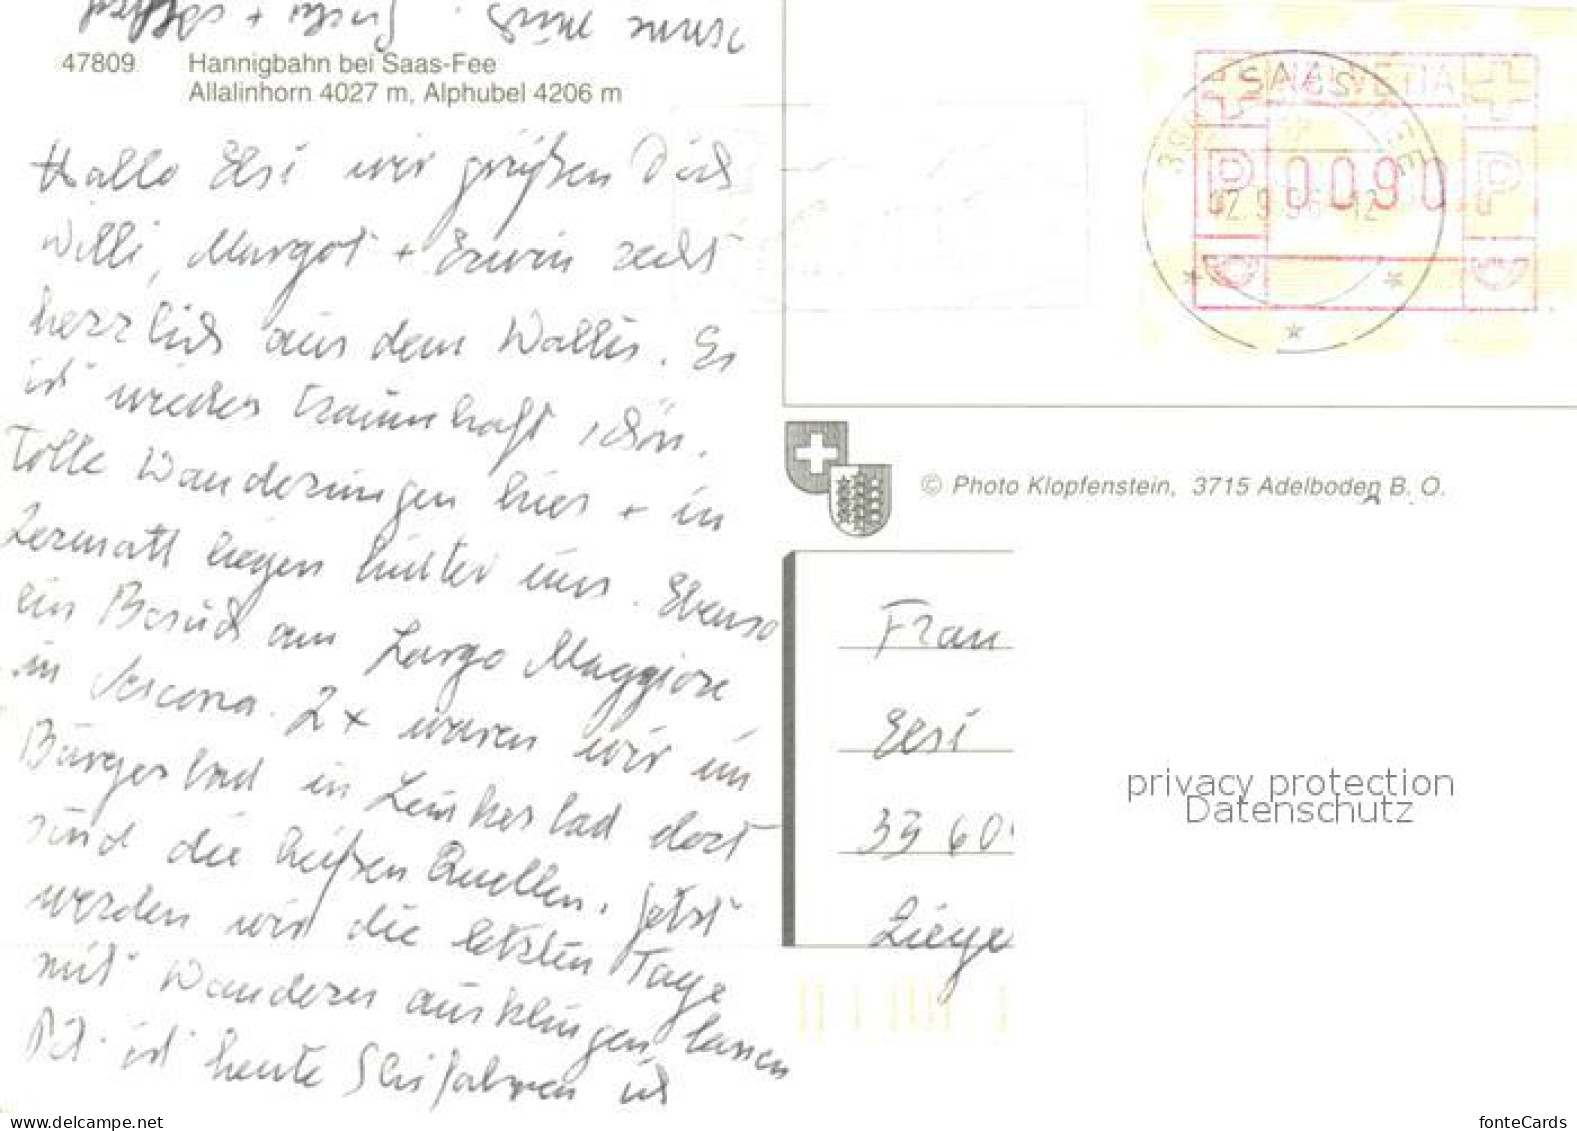 47809 Hannigbahn bei Saas-Fee
Allalinhorn 4027 m, Alphubel 4206 m
Hallo Elsi wir grüßen Dich
Willi, Margot + Erwin recht
herzlich aus dem Wallis. Es
ist wieder traumhaft schön.
Tolle Wanderungen hier + in
Zermatt liegen hinter uns. Ebenso
ein Besuch am Largo Maggiore
in Ascona. 2x waren wir im
Bürgerbad in Leukerbad dort
sind die heißen Quellen. Jetzt
werden wir die letzten Tage
mit Wandern ausklingen lassen
ist heute Skifahren ich
HELVETIA
SAAS-FEE
P 0090 P
© Photo Klopfenstein, 3715 Adelboden B. O.
Frau
Elsi
33 60
Ziege
privacy protection
Datenschutz
www.delcampe.net
fonteCards